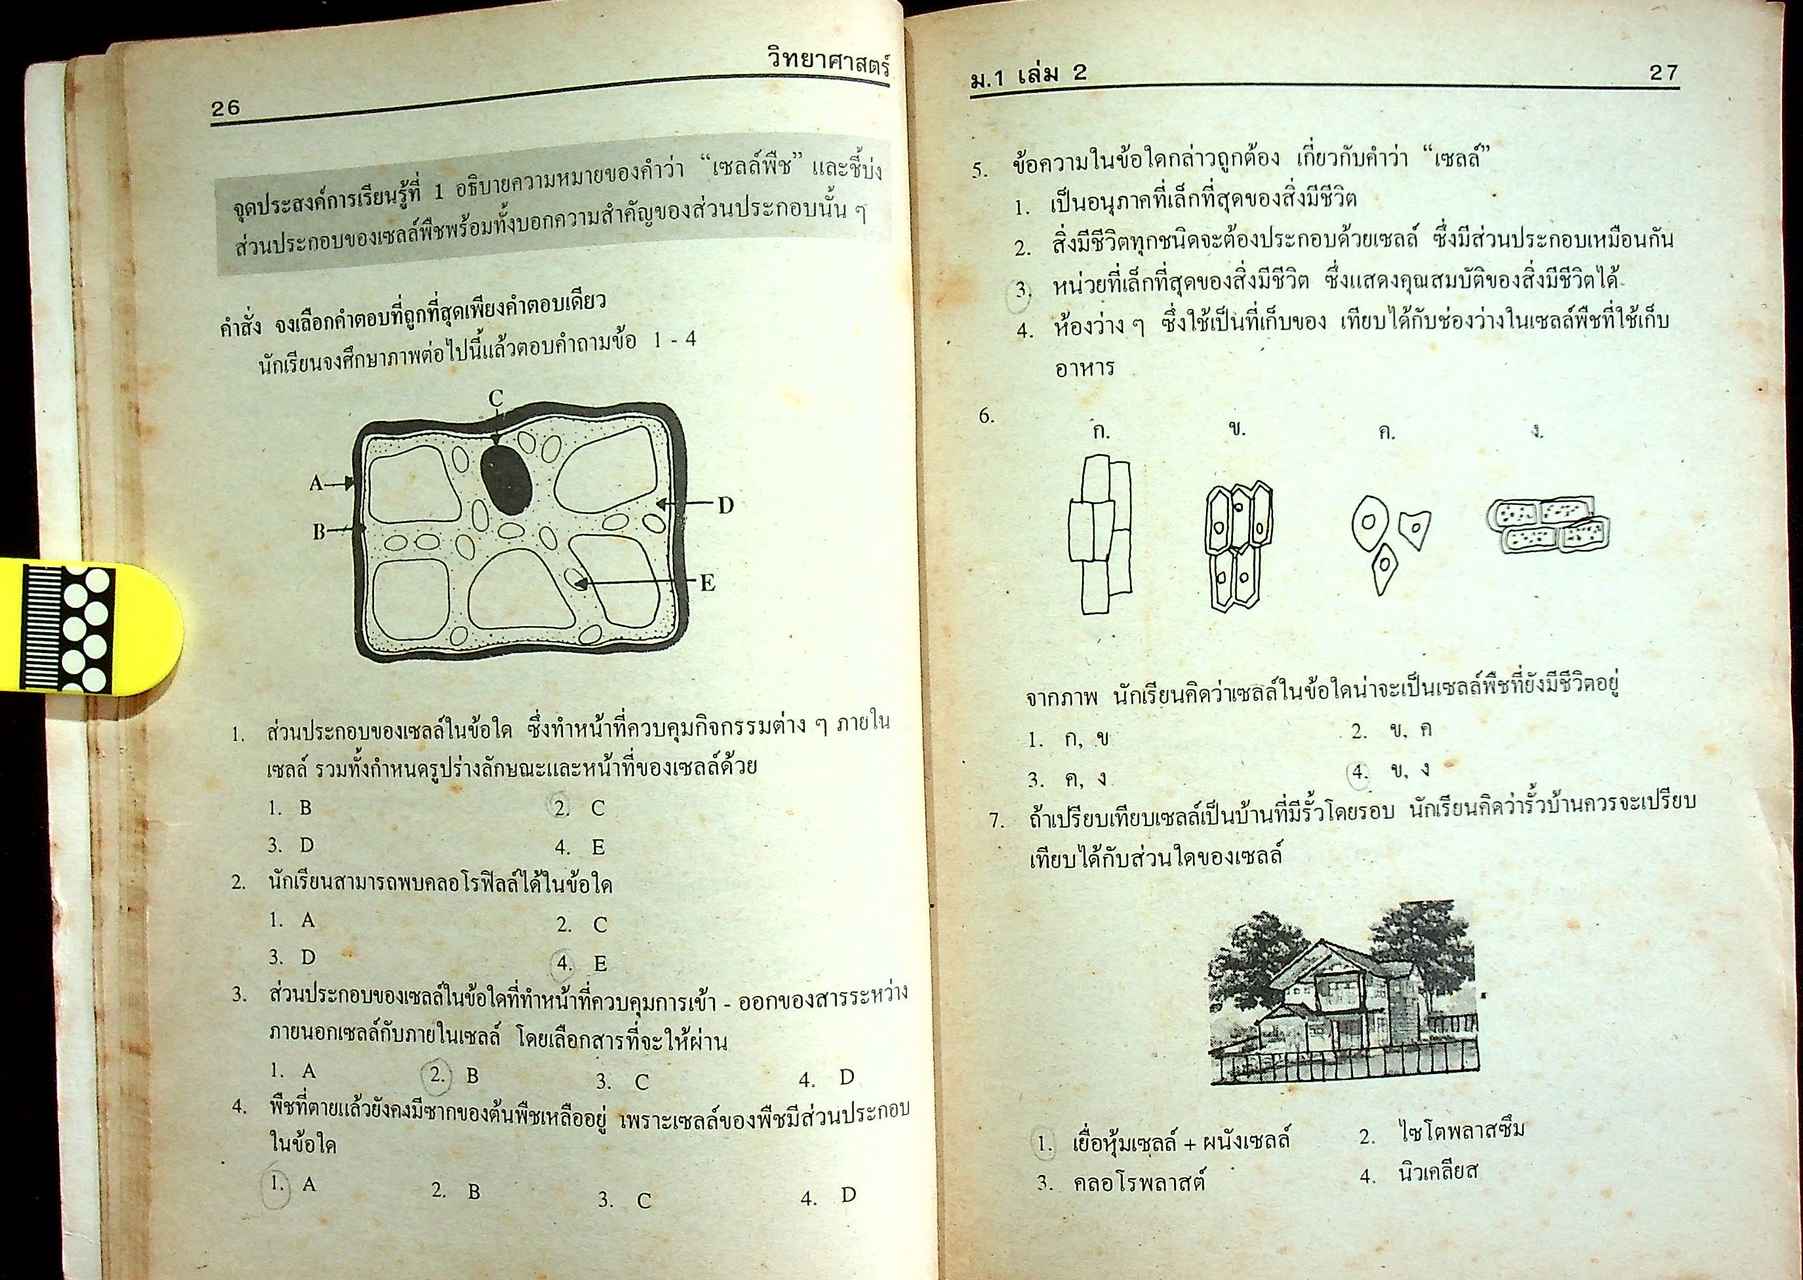 26
วิทยาศาสตร์
จุดประสงค์การเรียนรู้ที่ 1 อธิบายความหมายของคำว่า “เซลล์พืช” และชี้บ่ง
ส่วนประกอบของเซลล์พืชพร้อมทั้งบอกความสำคัญของส่วนประกอบนั้น ๆ
คำสั่ง จงเลือกคำตอบที่ถูกที่สุดเพียงคำตอบเดียว
นักเรียนจงศึกษาภาพต่อไปนี้แล้วตอบคำถามข้อ 1 - 4
C
A
D
B
E
1. ส่วนประกอบของเซลล์ในข้อใด ซึ่งทำหน้าที่ควบคุมกิจกรรมต่าง ๆ ภายใน
เซลล์ รวมทั้งกำหนดรูปร่างลักษณะและหน้าที่ของเซลล์ด้วย
1. B 2. C
3. D 4. E
2. นักเรียนสามารถพบคลอโรฟิลล์ได้ในข้อใด
1. A 2. C
3. D 4. E
3. ส่วนประกอบของเซลล์ในข้อใดที่ทำหน้าที่ควบคุมการเข้า - ออกของสารระหว่าง
ภายนอกเซลล์กับภายในเซลล์ โดยเลือกสารที่จะให้ผ่าน
1. A 2. B 3. C 4. D
4. พืชที่ตายแล้วยังคงมีซากของต้นพืชเหลืออยู่ เพราะเซลล์ของพืชมีส่วนประกอบ
ในข้อใด
1. A 2. B 3. C 4. D
ม.1 เล่ม 2
27
5. ข้อความในข้อใดกล่าวถูกต้อง เกี่ยวกับคำว่า “เซลล์”
1. เป็นอนุภาคที่เล็กที่สุดของสิ่งมีชีวิต
2. สิ่งมีชีวิตทุกชนิดจะต้องประกอบด้วยเซลล์ ซึ่งมีส่วนประกอบเหมือนกัน
3. หน่วยที่เล็กที่สุดของสิ่งมีชีวิต ซึ่งแสดงคุณสมบัติของสิ่งมีชีวิตได้
4. ห้องว่าง ๆ ซึ่งใช้เป็นที่เก็บของ เทียบได้กับช่องว่างในเซลล์พืชที่ใช้เก็บ
อาหาร
6.
ก. ข. ค. ง.
จากภาพ นักเรียนคิดว่าเซลล์ในข้อใดน่าจะเป็นเซลล์พืชที่ยังมีชีวิตอยู่
1. ก, ข 2. ข, ค
3. ค, ง 4. ข, ง
7. ถ้าเปรียบเทียบเซลล์เป็นบ้านที่มีรั้วโดยรอบ นักเรียนคิดว่ารั้วบ้านควรจะเปรียบ
เทียบได้กับส่วนใดของเซลล์
1. เยื่อหุ้มเซลล์ + ผนังเซลล์ 2. ไซโตพลาสซึม
3. คลอโรพลาสต์ 4. นิวเคลียส